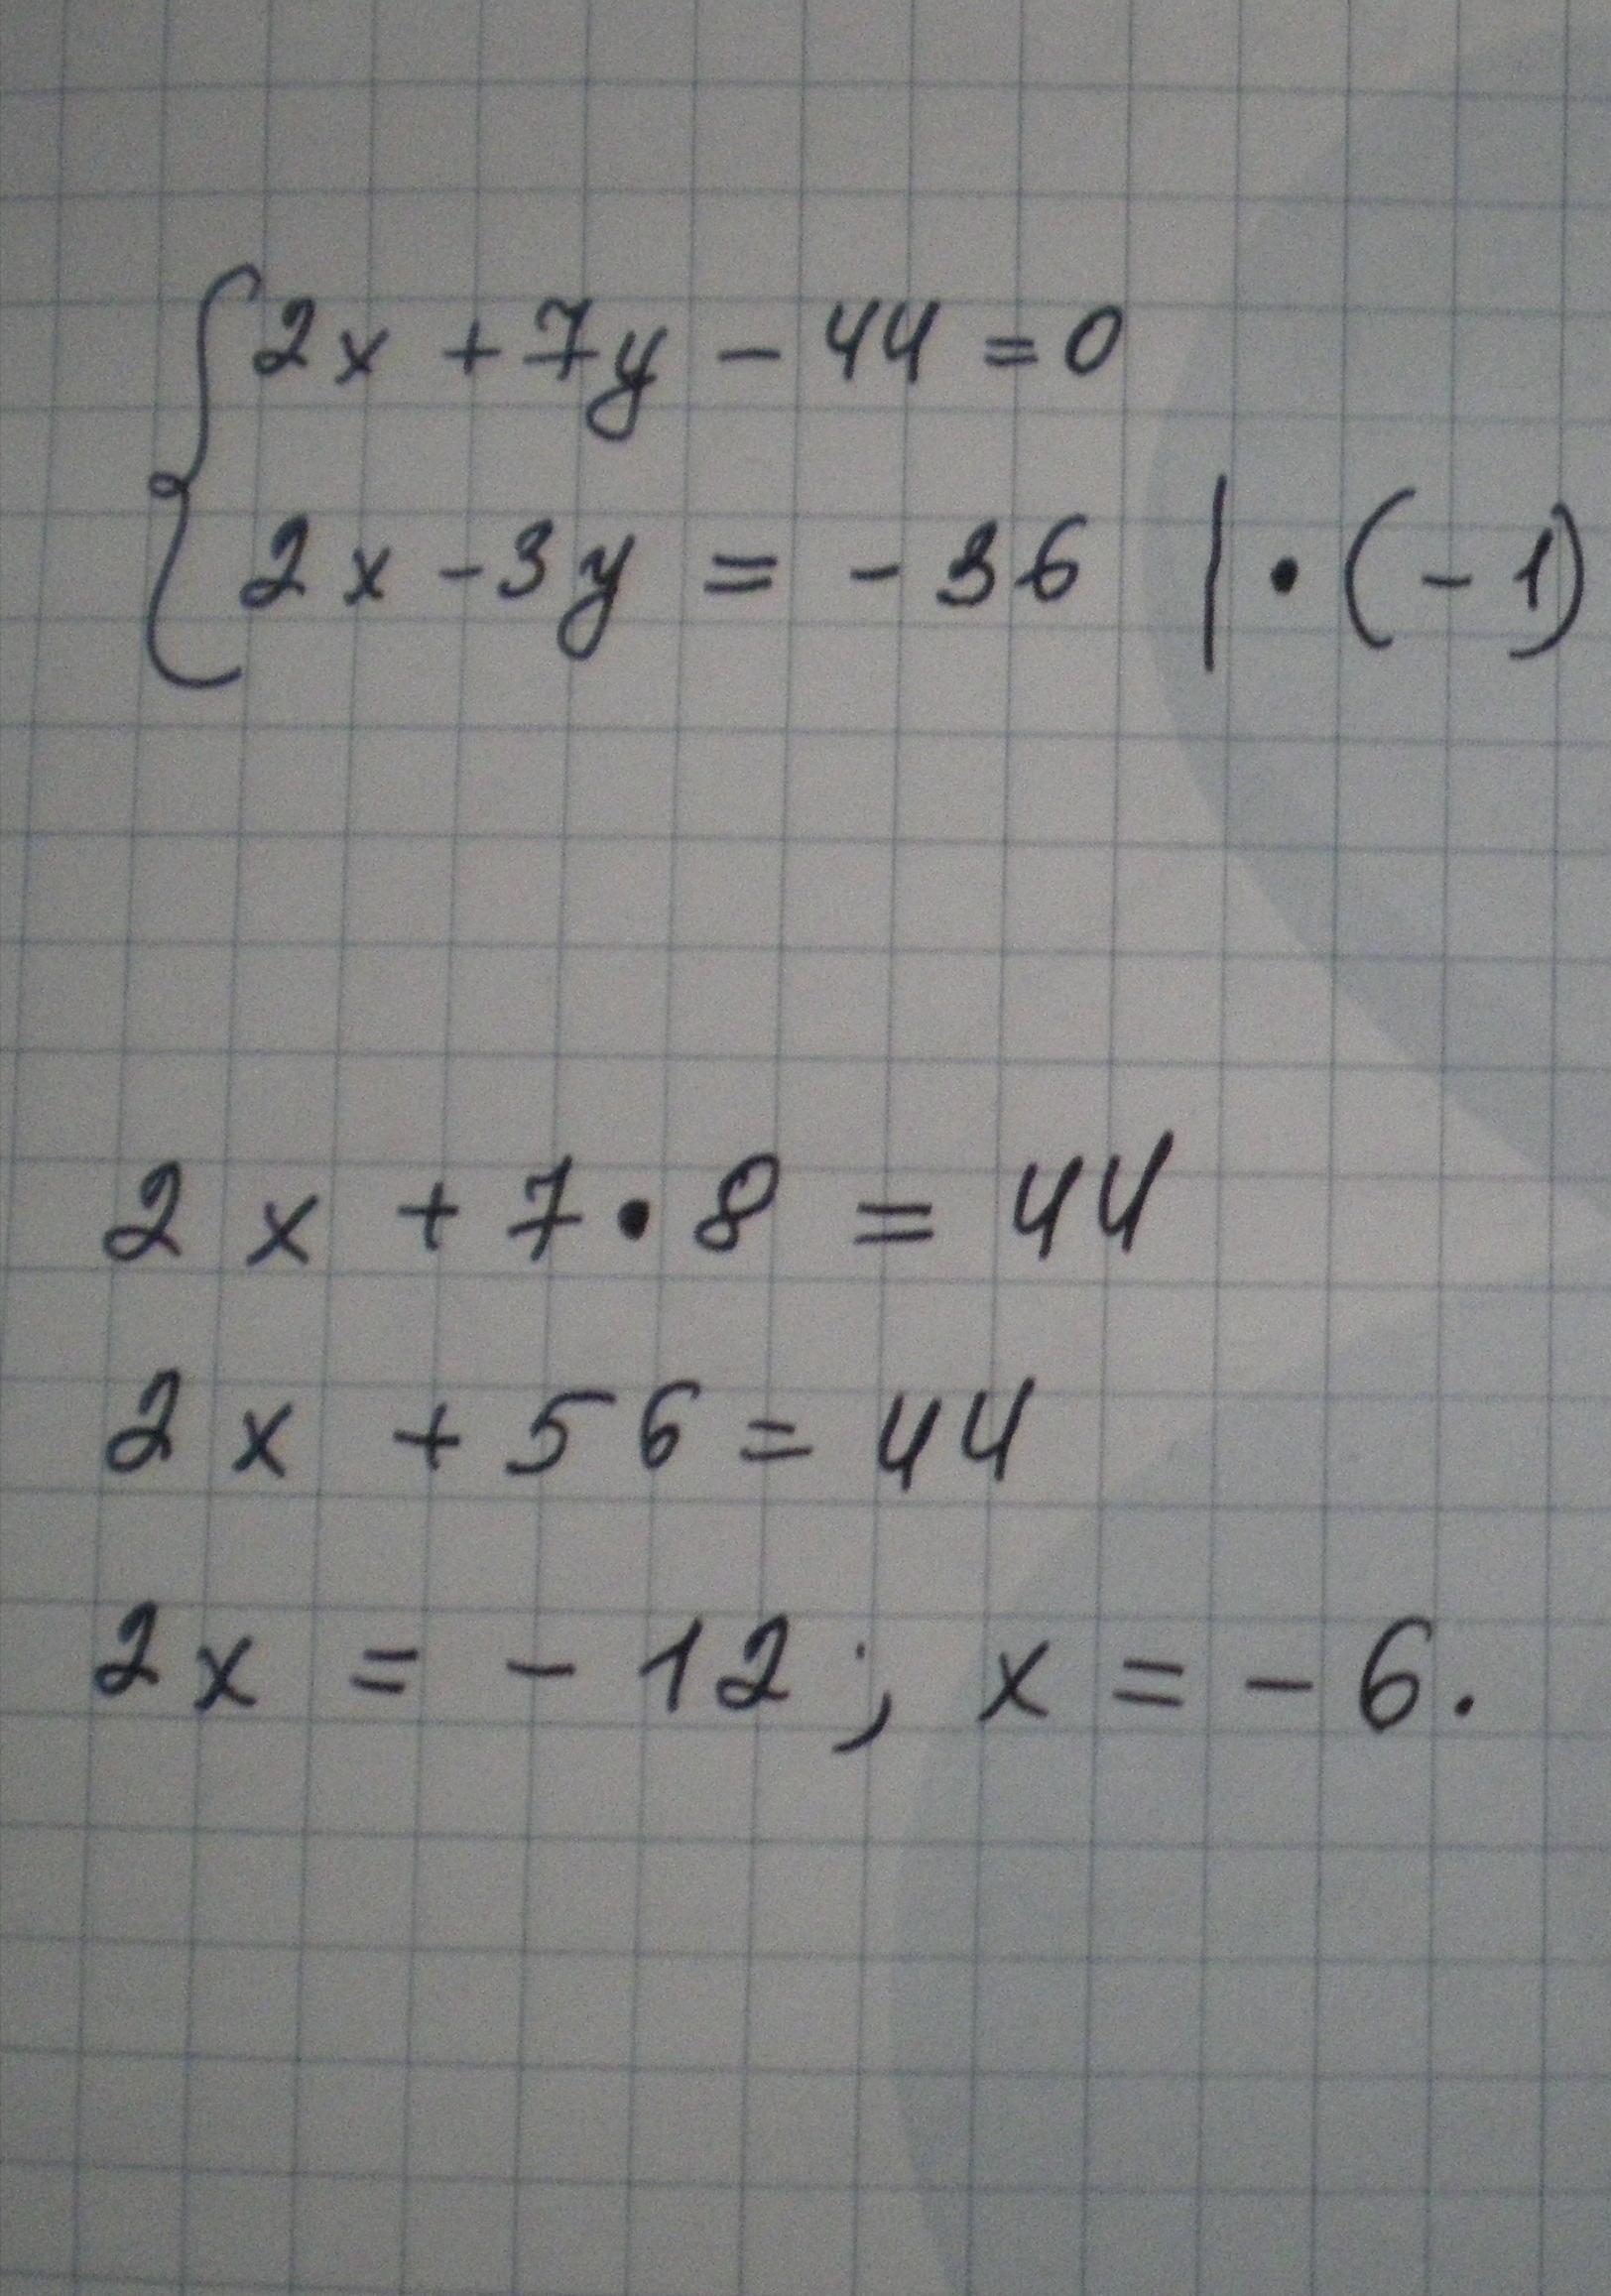 2x + 7y - 44 = 0
2x - 3y = - 36 | • (- 1)
2x + 7 • 8 = 44
2x + 56 = 44
2x = - 12 ; x = - 6.